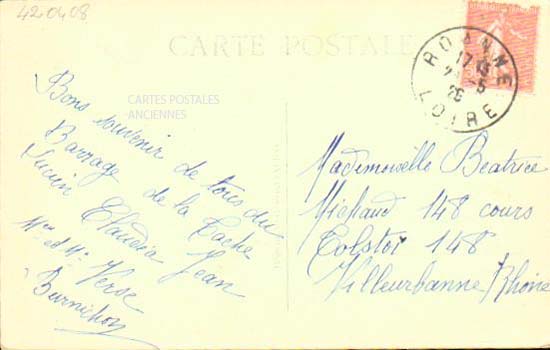 420408
CARTE POSTALE
CARTES POSTALES
ANCIENNES
ROANNE
17 45
26
LOIRE
Bons souvenir de tous du
Barrage de la Tache
Lucien Claudia Jean
Mme et Mr Verse
Burnichon
Mademoiselle Béatrice
Michaud 148 cours
Tolstoi 148
Villeurbanne Rhône